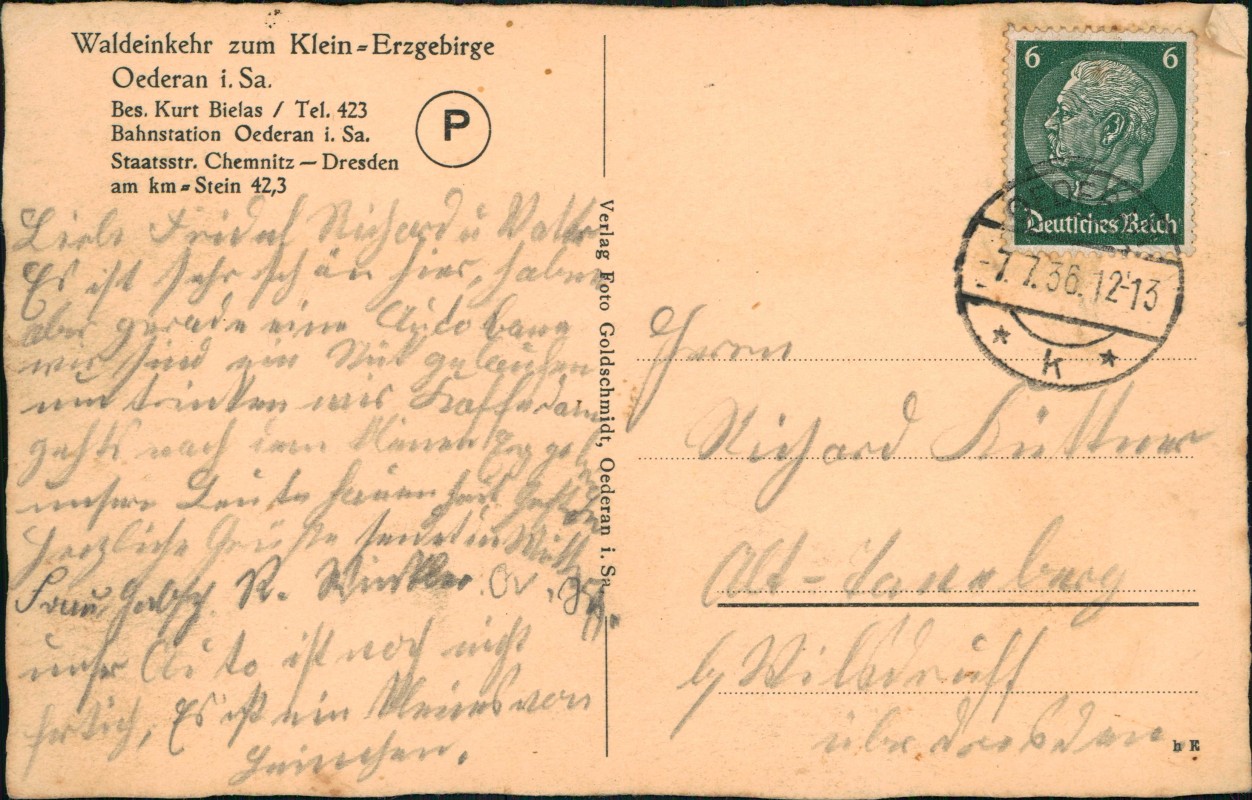 Waldeinkehr zum Klein=Erzgebirge
Oederan i. Sa.
Bes. Kurt Bielas / Tel. 423
Bahnstation Oederan i. Sa.
Staatsstr. Chemnitz — Dresden
am km=Stein 42,3
P
Liebe Frieda! Richard u Walter
Es ist sehr schön hier, haben
aber gerade eine Auto
wir sind ein Stück gelaufen
nun trinken wir Kaffe dann
gehts nach dem kleinen
unsere Leute
herzliche Grüße sendet
Frau R. Winkler
unser Auto ist noch nicht
fertich, Es ist ein kleines von
Hainichen.
Verlag Foto Goldschmidt, Oederan i. Sa.
6 6
Deutsches Reich
OEDERAN
-7.7.36.12-13
* k *
Herrn
Richard Küttner
Alt-Tanneberg
b/ Wilsdruff
über Dresden
h K